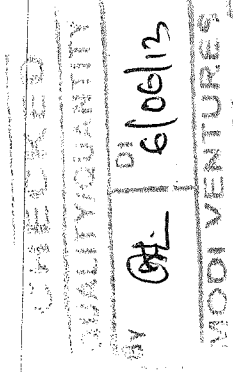 CHECKED
QUALITY/QUANTITY
BY DT 6/06/13
MODI VENTURES